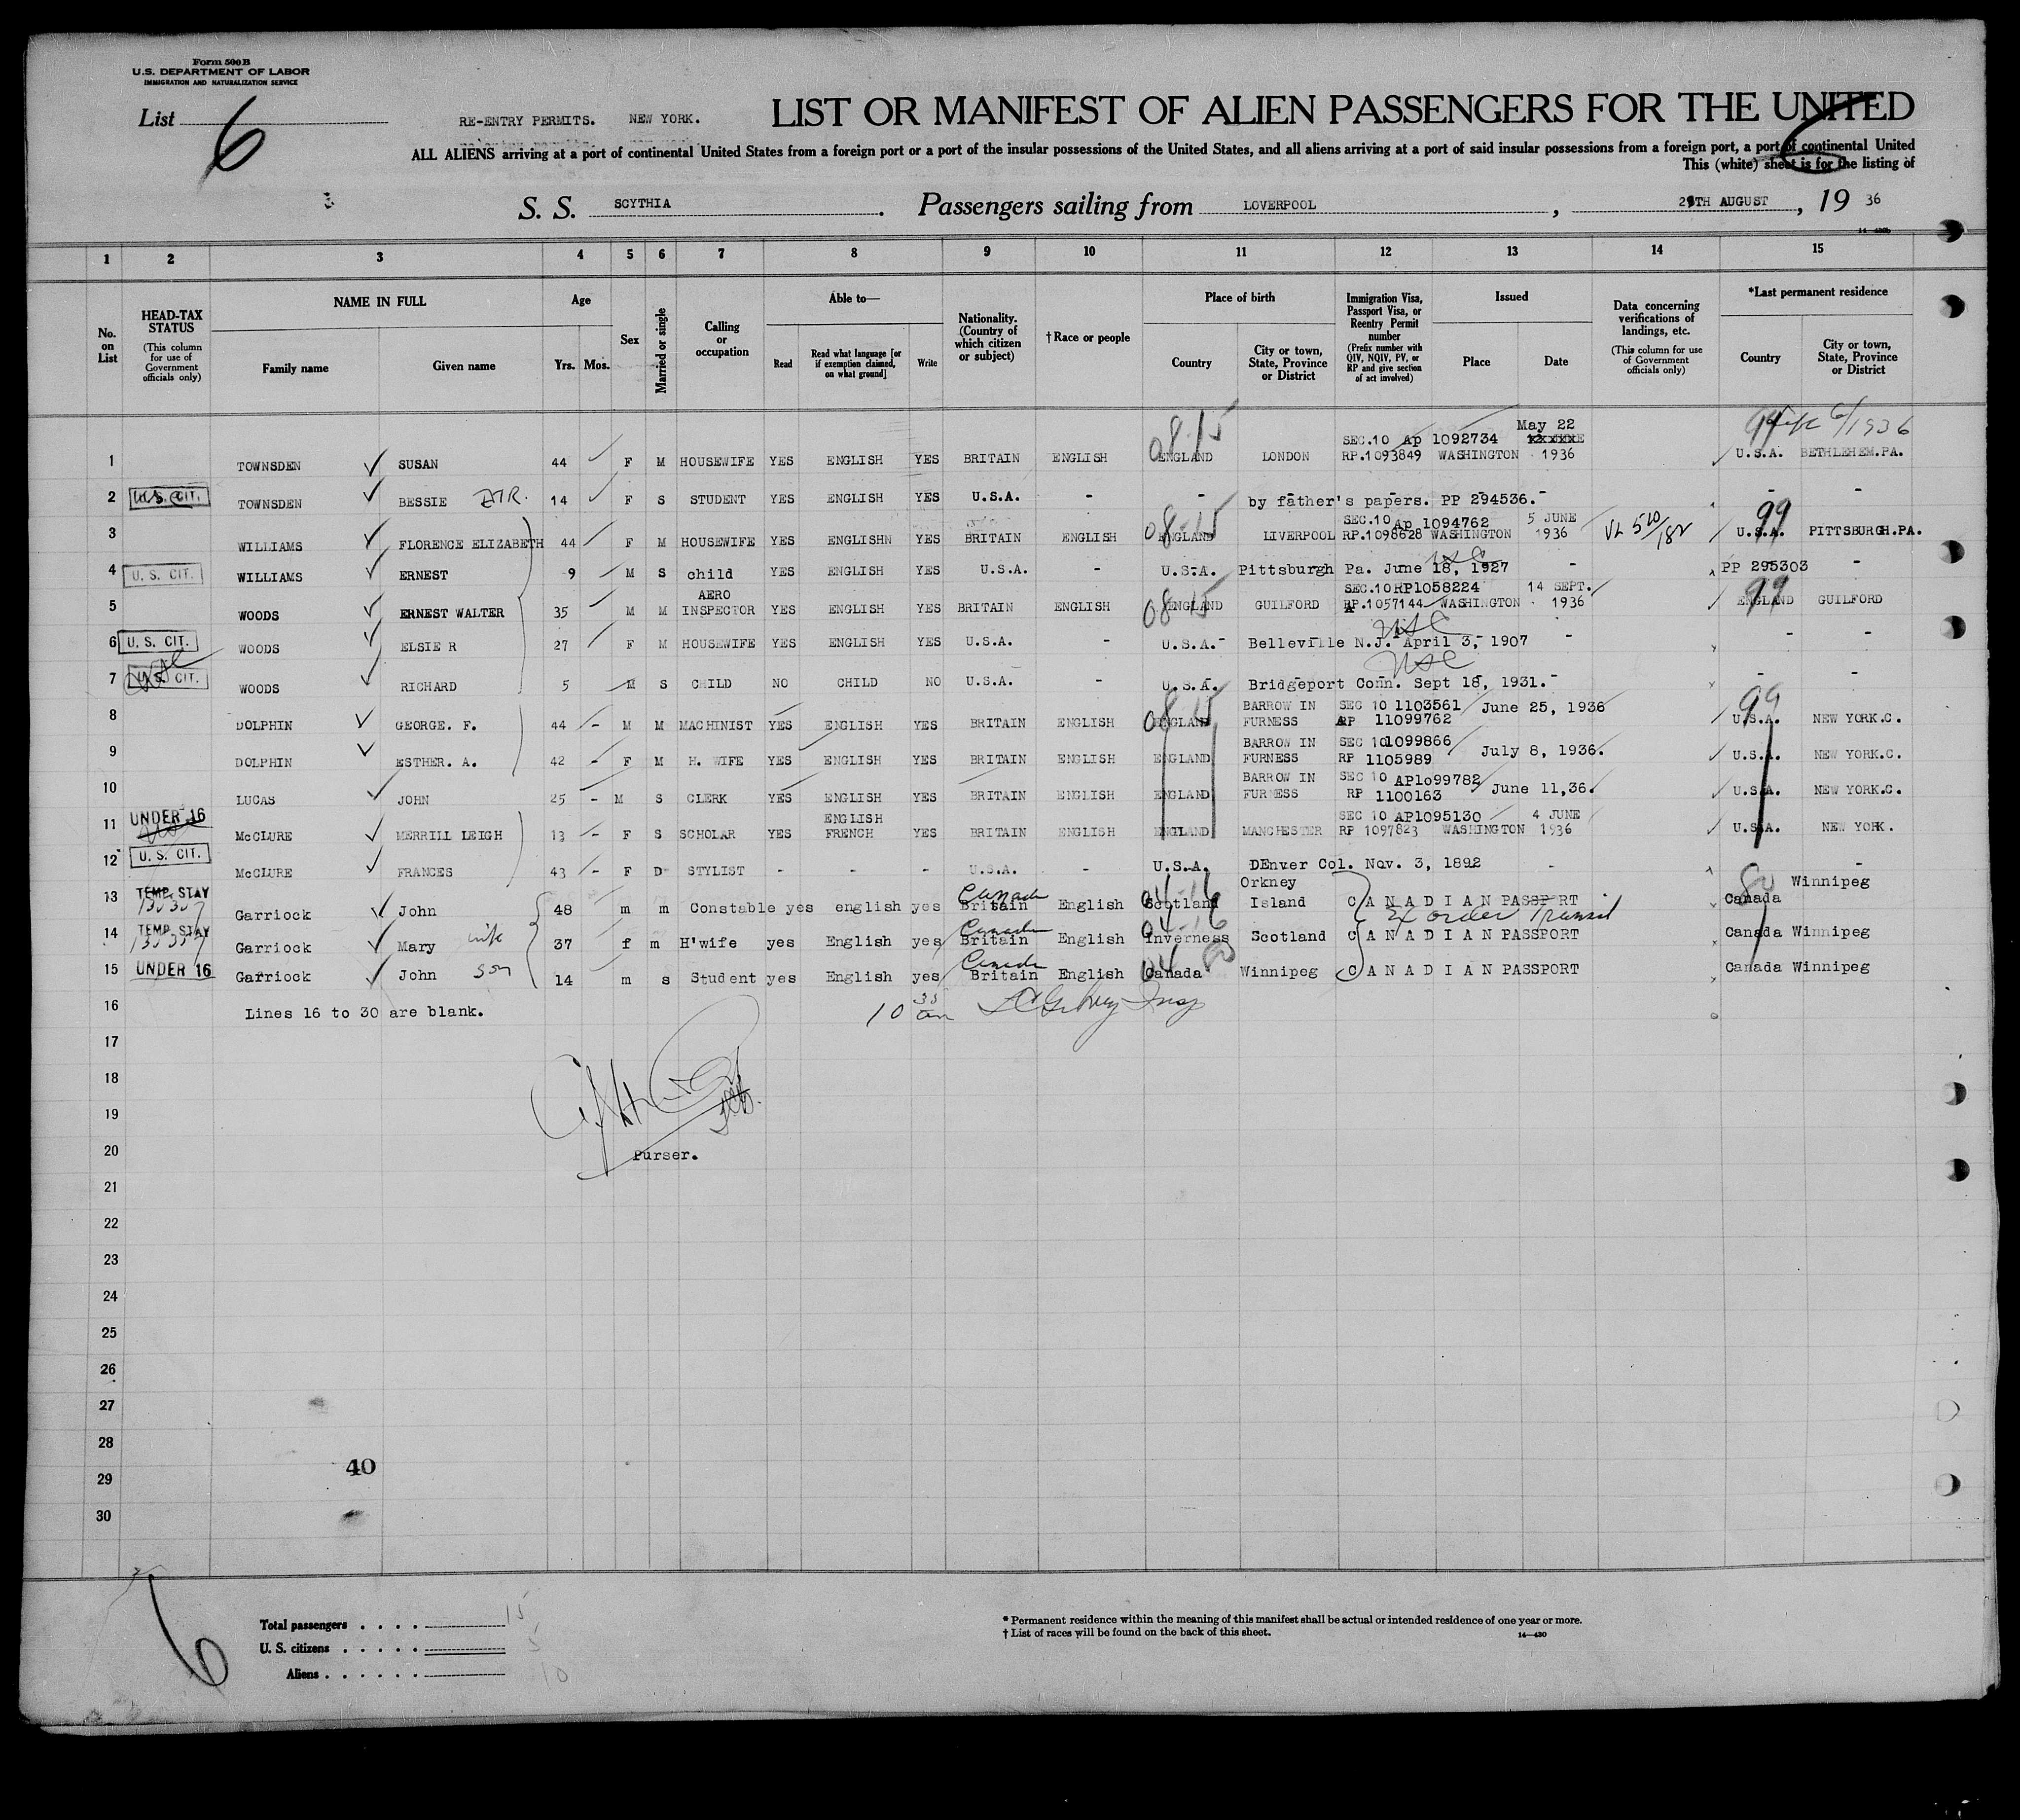 Form 500 B
U.S. DEPARTMENT OF LABOR
IMMIGRATION AND NATURALIZATION SERVICE
List 6
RE-ENTRY PERMITS. NEW YORK.
LIST OR MANIFEST OF ALIEN PASSENGERS FOR THE UNITED
ALL ALIENS arriving at a port of continental United States from a foreign port or a port of the insular possessions of the United States, and all aliens arriving at a port of said insular possessions from a foreign port, a port of continental United
This (white) sheet is for the listing of
S. S. SCYTHIA. Passengers sailing from LOVERPOOL, 29TH AUGUST, 19 36
1 2 3 4 5 6 7 8 9 10 11 12 13 14 15
No. on List
HEAD-TAX STATUS (This column for use of Government officials only)
NAME IN FULL Family name Given name
Age Yrs. Mos.
Sex
Married or single
Calling or occupation
Able to— Read Read what language [or if exemption claimed, on what ground] Write
Nationality. (Country of which citizen or subject)
† Race or people
Place of birth Country City or town, State, Province or District
Immigration Visa, Passport Visa, or Reentry Permit number (Prefix number with QIV, NQIV, PV, or RP and give section of act involved)
Issued Place Date
Data concerning verifications of landings, etc. (This column for use of Government officials only)
*Last permanent residence Country City or town, State, Province or District
08-15 May 22 99 Sept 6/1936
SEC.10 Ap 1092734
1 TOWNSDEN SUSAN 44 F M HOUSEWIFE YES ENGLISH YES BRITAIN ENGLISH ENGLAND LONDON RP.1093849 WASHINGTON 1936 U.S.A. BETHLEHEM.PA.
2 U.S. CIT. TOWNSDEN BESSIE 14 F S STUDENT YES ENGLISH YES U.S.A. - - by father's papers. PP 294536. - - -
08-15 SEC.10 Ap 1094762 5 JUNE 99
3 WILLIAMS FLORENCE ELIZABETH 44 F M HOUSEWIFE YES ENGLISHN YES BRITAIN ENGLISH ENGLAND LIVERPOOL RP.1098628 WASHINGTON 1936 VL 510/182 U.S.A. PITTSBURGH.PA.
4 U. S. CIT. WILLIAMS ERNEST 9 M S child YES ENGLISH YES U.S.A. - U.S.A. Pittsburgh Pa. June 18, 1927 - PP 295303 -
AERO 08-15 SEC.10 RP1058224 14 SEPT. 99
5 WOODS ERNEST WALTER 35 M M INSPECTOR YES ENGLISH YES BRITAIN ENGLISH ENGLAND GUILFORD RP.1057144 WASHINGTON 1936 ENGLAND GUILFORD
6 U. S. CIT. WOODS ELSIE R 27 F M HOUSEWIFE YES ENGLISH YES U.S.A. - U.S.A. - Belleville N.J. April 3, 1907 - - -
7 U. S. CIT. WOODS RICHARD 5 M S CHILD NO CHILD NO U.S.A. - U.S.A. Bridgeport Conn. Sept 18, 1931. - - -
08-15 BARROW IN SEC 10 1103561 June 25, 1936 99
8 DOLPHIN GEORGE. F. 44 - M M MACHINIST YES ENGLISH YES BRITAIN ENGLISH ENGLAND FURNESS RP 11099762 U.S.A. NEW YORK.C.
BARROW IN SEC 10 1099866 July 8, 1936.
9 DOLPHIN ESTHER. A. 42 - F M H. WIFE YES ENGLISH YES BRITAIN ENGLISH ENGLAND FURNESS RP 1105989 U.S.A. NEW YORK.C.
BARROW IN SEC 10 AP1099782 June 11,36.
10 LUCAS JOHN 25 - M S CLERK YES ENGLISH YES BRITAIN ENGLISH ENGLAND FURNESS RP 1100163 U.S.A. NEW YORK.C.
UNDER 16 ENGLISH SEC 10 AP1095130 4 JUNE
11 McCLURE MERRILL LEIGH 13 - F S SCHOLAR YES FRENCH YES BRITAIN ENGLISH ENGLAND MANCHESTER RP 1097823 WASHINGTON 1936 U.S.A. NEW YORK.
12 U. S. CIT. McCLURE FRANCES 43 - F D STYLIST - - - U.S.A. - U.S.A. DEnver Col. Nov. 3, 1892 - -
TEMP. STAY Canada 04-16 Orkney 80 Winnipeg
13 Garriock John 48 m m Constable yes english yes Britain English Scotland Island CANADIAN PASSPORT Canada
Ex order Transit
TEMP. STAY Canada 04-16
14 Garriock Mary wife 37 f m H'wife yes English yes Britain English Inverness Scotland CANADIAN PASSPORT Canada Winnipeg
UNDER 16 Canada 04
15 Garriock John son 14 m s Student yes English yes Britain English Canada Winnipeg CANADIAN PASSPORT Canada Winnipeg
16 Lines 16 to 30 are blank.
17
18
19
20 Purser.
21
22
23
24
25
26
27
28
40
29
30
6
Total passengers 15
U. S. citizens 5
Aliens 10
* Permanent residence within the meaning of this manifest shall be actual or intended residence of one year or more.
† List of races will be found on the back of this sheet. 14—430